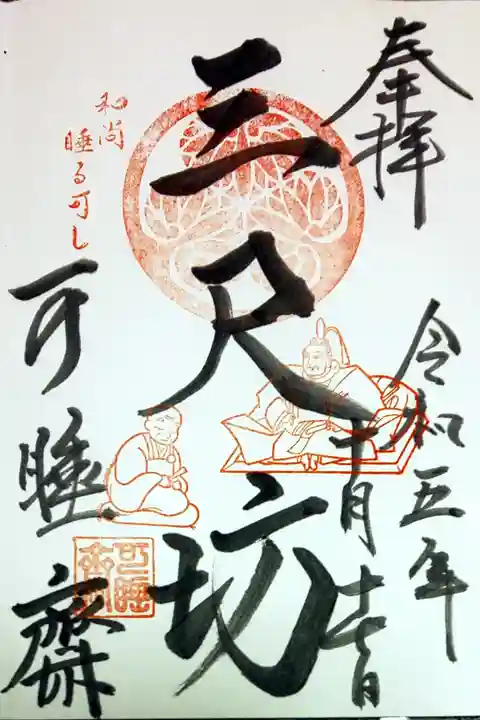 奉拝
令和五年
十月十七日
三尺坊
和尚
睡る可し
可睡齋